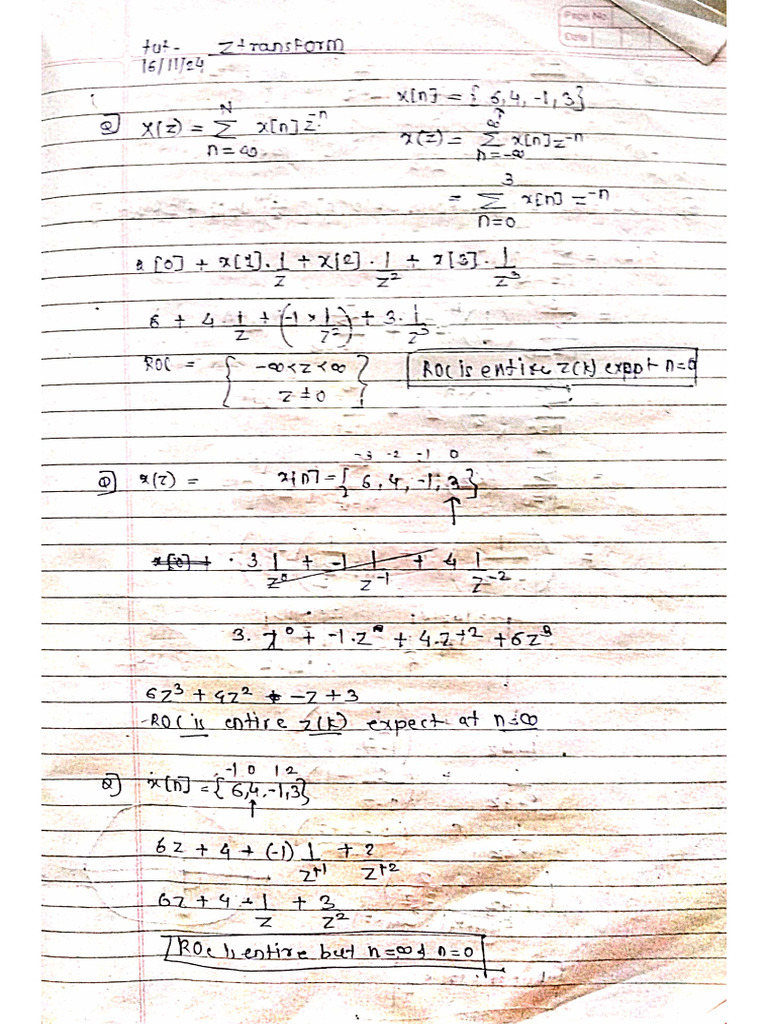 Page No.
Date
tut- Ztransform
16/11/24
x[n] = {6,4,-1,3}
↑
Q) X(z) = N Σ n=∞ x[n] z^-n
x(z) = ∞ Σ n=-∞ x[n] z^-n
= 3 Σ n=0 x[n] z^-n
x[0] + x[1]. 1/z + x[2] . 1/z^2 + x[3] . 1/z^3
6 + 4 . 1/z + (-1 × 1/z^2) + 3. 1/z^3
ROC = { -∞<z<∞ z≠0 } ROC is entire z(k) exppt n=0
-3 -2 -1 0
Q) x(z) = x[n] = { 6, 4, -1, 3 }
↑
x[0] + . 3 1/z^0 + -1 1/z^-1 + 4 1/z^-2
3. z^0 + -1.z + 4.z^+2 + 6z^3
6z^3 + 4z^2 + -z + 3
-ROC is entire z(k) expect at n=∞
-1 0 1 2
Q) x[n] = {6,4,-1,3}
↑
6z + 4 + (-1) 1/z^+1 + 3/z^+2
6z + 4 + 1/z + 3/z^2
ROC is entire but n=∞ & n=0